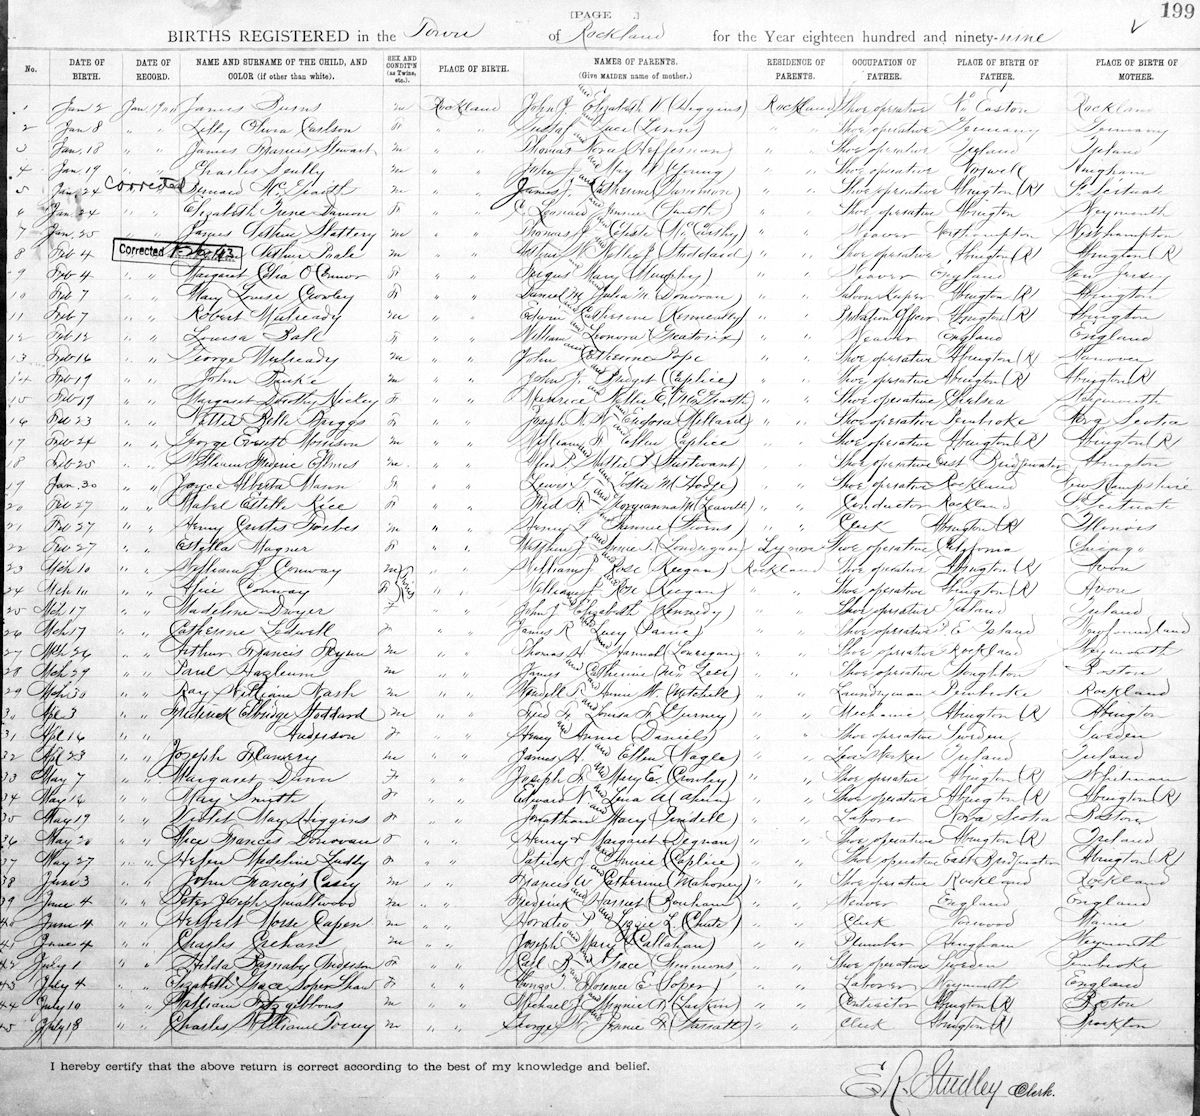 [PAGE ] 199
BIRTHS REGISTERED in the Town of Rockland for the Year eighteen hundred and ninety-nine
No. DATE OF BIRTH. DATE OF RECORD. NAME AND SURNAME OF THE CHILD, AND COLOR (if other than white). SEX AND CONDIT'N (as Twins, etc.). PLACE OF BIRTH. NAMES OF PARENTS. (Give MAIDEN name of mother.) RESIDENCE OF PARENTS. OCCUPATION OF FATHER. PLACE OF BIRTH OF FATHER. PLACE OF BIRTH OF MOTHER.
1 Jan 2 James Burns m Rockland John J. and Elizabeth W (Higgins) Rockland Shoe operative No Easton Rockland
2 Jan 8 " " Lilly Olivia Carlson F " " Gustaf and (Linn) " " Shoe operative Germany Germany
3 Jan. 18 " " James Francis Stewart m " " Thomas and Nora (Heffernan) " " Shoe operative Ireland Ireland
4 Jan 19 " " Charles Scully m " " John J. and May W (Young) " " Shoe operative Norwell Hingham
5 Jan 24 Corrected Bernard McGrath m " " James J. and Catherine " " Shoe operative Abington (R) So Scituate
6 Jan. 24 " " Elizabeth Irene Damon F " " E. Leonard and Jennie (Smith) " " Shoe operative Abington Weymouth
7 Jan. 25 " " James Arthur Slattery m " " Thomas J. and " " Weaver Northampton Northampton
8 Feb 4 Corrected Arthur Poole m " " and Nellie J. Stoddard " " Shoe operative Abington (R) Abington (R)
9 Feb 4 " " Margaret Celia O'Connor F " " and Mary (Murphy) " " England New Jersey
10 Feb 7 " " Mary Louise Crowley F " " Daniel M. and Julia M Donovan) " " Saloon Keeper Abington (R) Abington
11 Feb 7 " " Robert Mulready m " " Edwin and Catherine (Kenneally) " " Probation Officer Abington (R) Abington
12 Feb 12 " " Louisa Ball F " " William and Leonora (Greatorix) " " Weaver England England
13 Feb 16 " " George Mulready m " " John and Catherine Pope " " Shoe operative Abington (R) Hanover
14 Feb 19 " " John Burke m " " John J. and Bridget (Caplice) " " Shoe operative Abington (R) Abington (R)
15 Feb 19 " " Margaret Dorothy Hickey F " " Maurice and Nellie E. McGrath) " " Shoe operative Chelsea Weymouth
16 Feb 23 " " Nettie Belle Briggs F " " Joseph and Eudora Millard " " Shoe operative Pembroke Nova Scotia
17 Feb 24 " " George Everett Morrison m " " William F. and Ellen (Caplice " " Shoe operative Abington (R) Abington (R)
18 Feb 25 " " William Elmes m " " Fred P. and Nettie L Sturtevant) " " Shoe operative East Bridgewater Abington
19 Jan. 30 " " Joyce Alberta Mann F " " Lewis and Etta M Hodge) " " Shoe operative Rockland New Hampshire
20 Feb 27 " " Mabel Estelle Rice F " " Fred F. and Georgianna M (Leavitt) " " Conductor Rockland So Scituate
21 Feb 27 " " Henry Curtis Forbes m " " Henry and " " Clerk Abington (R) Illinois
22 Feb 27 " " Estella Magner F " " Matthew J and Annie (Londregan) Lynn Shoe operative California Chicago
23 Mch 10 " " William J. Conway m Twins " " William J. and Rose (Keegan) Rockland Shoe operative Abington (R) Avon
24 Mch 10 " " Alice Conway F " " William J. and Rose Keegan) " " Shoe operative Abington (R) Avon
25 Mch 17 " " Madeline Dwyer F " " John J. and Elizabeth (Kennedy) " " Shoe operative Ireland Ireland
26 Mch 17 " " Catherine Ledwell F " " James R and Lucy (Panie) " " Shoe operative P. E. Island Newfoundland
27 Mch 26 " " Arthur Francis Flynn m " " Thomas H. and Hannah (Lonergan) " " Shoe operative Rockland Weymouth
28 Mch 29 " " Paul Hazleum m " " James and Catherine (McGee) " " Shoe operative Stoughton Boston
29 Mch 30 " " Ray William Nash m " " Wendell F. and Annie W. (Mitchell) " " Laundryman Pembroke Rockland
30 Apl 3 " " Frederick Elbridge Stoddard m " " Fred F. and Louisa F. Gurney) " " Mechanic Abington (R) Abington
31 Apl 16 " " Anderson " " Henry and Annie Daniels) " " Shoe operative Sweden Sweden
32 Apl 23 " " Joseph Flannery m " " James H. and Ellen (Nagle) " " Ireland Ireland
33 May 7 " " Margaret Dunn F " " Joseph F. and Mary E. (Crowley) " " Shoe operative Abington (R) Whitman
34 May 16 " " May Smith F " " Edward N. and Lena A (Ahern) " " Shoe operative Abington (R) Abington (R)
35 May 19 " " Violet May Higgins F " " Jonathan and Mary (Lindell) " " Laborer Nova Scotia Boston
36 May 20 " " Alice Frances Donovan F " " Henry and Margaret Degnan) " " Shoe operative Abington (R) Ireland
37 May 27 " " Helen Madeline Luddy F " " Patrick J. and Annie (Caplice) " " Shoe operative East Bridgewater Abington (R)
38 June 3 " " John Francis Casey m " " Francis W. and Catherine (Mahoney) " " Shoe operative Rockland Rockland
39 June 4 " " Peter Joseph Smallwood m " " Frederick and Harriet (Bonham) " " Weaver England England
40 June 4 " " Herbert Morse Capen m " " Horatio P. and Lizzie L (Chute) " " Clerk Norwood Maine
41 June 4 " " Charles Crehan m " " Joseph and Mary (Callahan) " " Plumber Hingham Weymouth
42 July 1 " " Hilda Barnaby Anderson F " " Carl B. and Grace Simmons) " " Shoe operative Sweden Pembroke
43 July 4 " " Elizabeth Grace Soper Shaw F " " Alonzo and Florence E Soper) " " Laborer Weymouth England
44 July 10 " " William Fitzgibbons m " " Michael J. and Minnie A. (Larkin) " " Contractor Abington (R) Boston
45 July 18 " " Charles William Torrey m " " George W. and Jennie F. " " Clerk Abington (R) Brockton
I hereby certify that the above return is correct according to the best of my knowledge and belief.
E R. Studley Clerk.